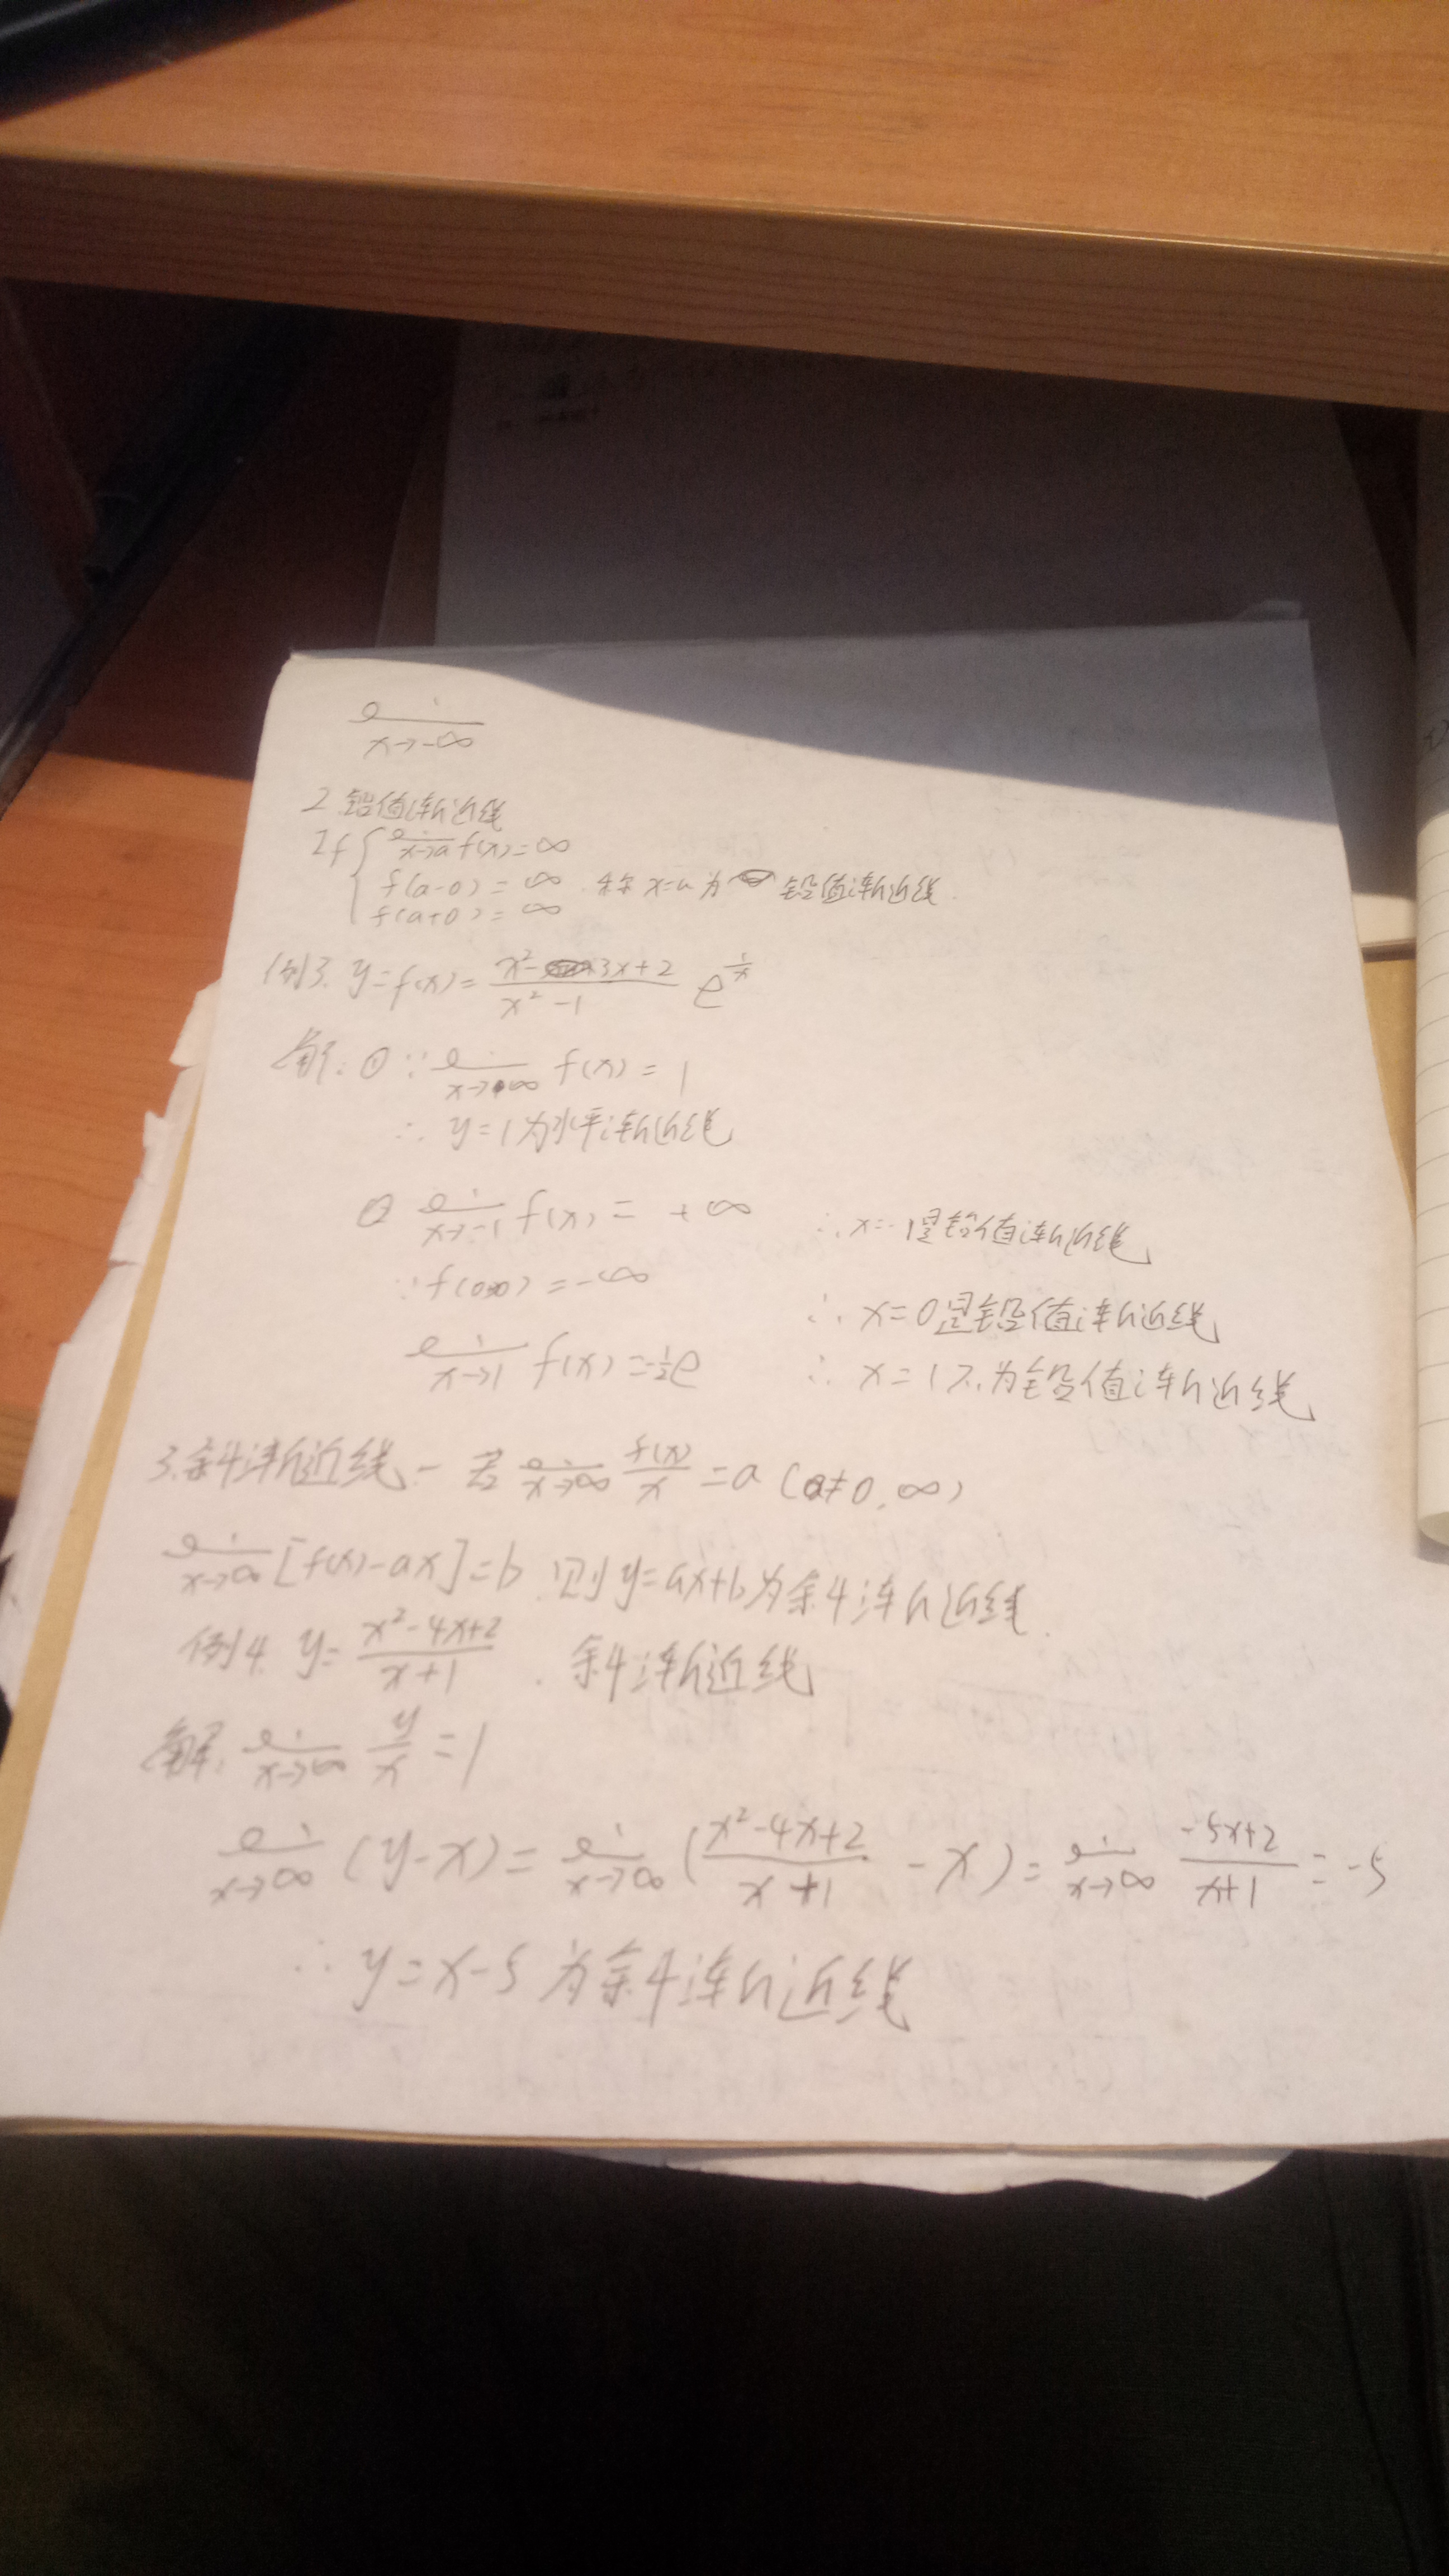 lim x→-∞
2 铅值渐近线
If { lim x→a f(x)=∞
f(a-0)=∞ 称 x=a 为 铅值渐近线.
f(a+0)=∞
例3. y=f(x)= (x²-3x+2)/(x²-1) e^(1/x)
解: ① ∵ lim x→∞ f(x)=1
∴ y=1为水平渐近线
② lim x→-1 f(x)= +∞ ∴x=-1是铅值渐近线
∵f(0+0)=-∞ ∴ x=0是铅值渐近线
lim x→1 f(x)=-½e ∴ x=1不为铅值渐近线
3.斜渐近线- 若 lim x→∞ f(x)/x =a (a≠0,∞)
lim x→∞ [f(x)-ax]=b 则y=ax+b为斜渐近线.
例4. y= (x²-4x+2)/(x+1) . 斜渐近线
解: lim x→∞ y/x =1
lim x→∞ (y-x)= lim x→∞ ((x²-4x+2)/(x+1) -x)= lim x→∞ (-5x+2)/(x+1) =-5
∴ y=x-5 为斜渐近线